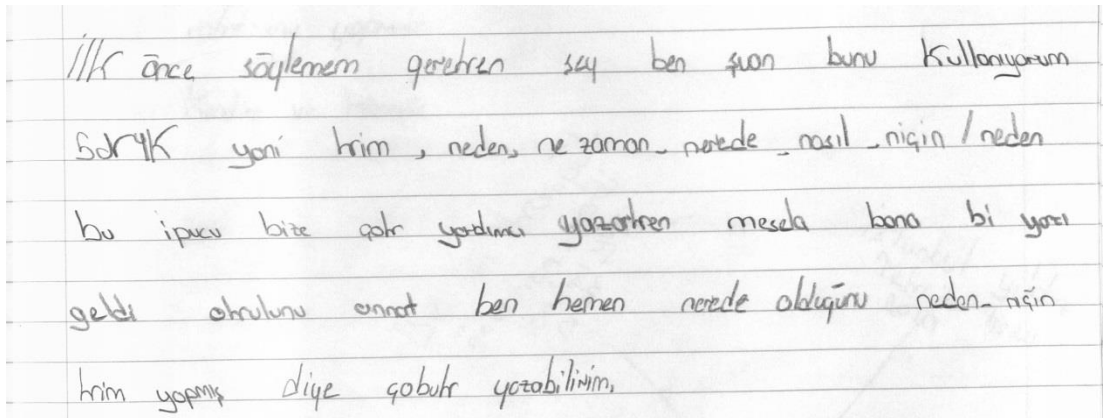 İlk önce söylemem gereken şey ben şuan bunu kullanıyorum
5dr4K yani kim, neden, ne zaman - nerede - nasıl - niçin / neden
bu ipucu bize çok yardımcı yazarken mesela bana bi yazı
geldi okulunu annat ben hemen nerede olduğunu neden - niçin
kim yapmış diye çabuk yazabilirim.